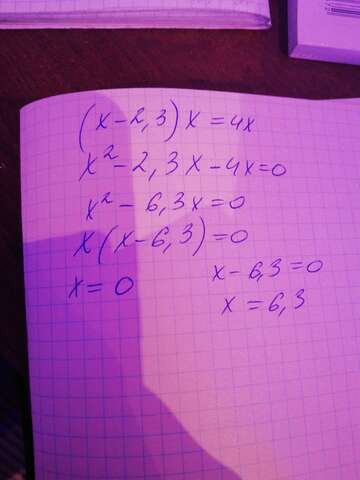 (x-2,3)x=4x
x²-2,3x-4x=0
x²-6,3x=0
x(x-6,3)=0
x=0
x-6,3=0
x=6,3